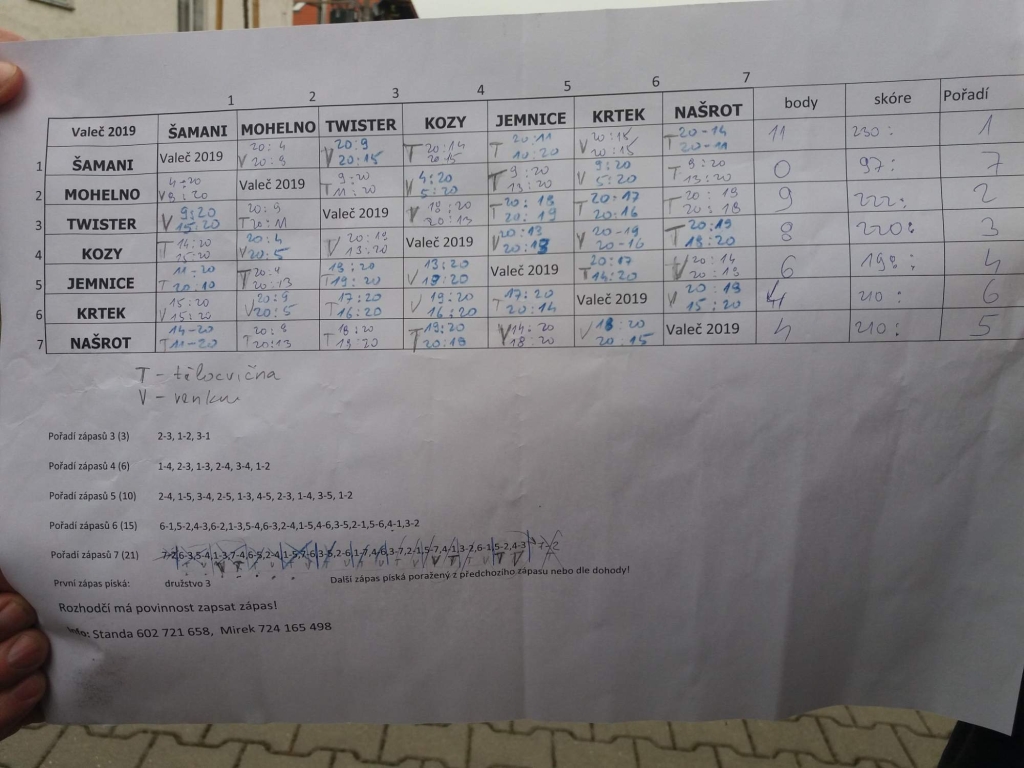 1 2 3 4 5 6 7
Valeč 2019 ŠAMANI MOHELNO TWISTER KOZY JEMNICE KRTEK NAŠROT body skóre Pořadí
1 ŠAMANI Valeč 2019 20:4 V 20:9 20:9 V 20:15 T 20:14 T 20:11 V 20:15 T 20-14 20-11 11 230: 1
2 MOHELNO 4-20 Valeč 2019 9:20 T 11:20 V 4:20 5:20 9:20 13:20 9:20 V 5:20 T 9:20 13:20 0 97: 7
3 TWISTER V 9:20 15:20 20:9 T 20:11 Valeč 2019 V 20:13 T 20:19 T 20:17 20:16 T 20:18 9 222: 2
4 KOZY T 14:20 20:4 V 20:5 V 13:20 Valeč 2019 V 20:13 V 20-19 20-16 T 20:19 8 220: 3
5 JEMNICE 11-20 T 20:13 T 19:20 13:20 V Valeč 2019 20:17 T 14:20 V 6 198: 4
6 KRTEK 15:20 V 15:20 20:9 V 20:5 17:20 T 16:20 19:20 V 16:20 17:20 T 20:14 Valeč 2019 V 15:20 4 210: 6
7 NAŠROT 14-20 T 11-20 20:9 T 20:13 T 19:20 T V 14:20 18:20 V 20:15 Valeč 2019 4 210: 5
T - tělocvična
V - venku
Pořadí zápasů 3 (3) 2-3, 1-2, 3-1
Pořadí zápasů 4 (6) 1-4, 2-3, 1-3, 2-4, 3-4, 1-2
Pořadí zápasů 5 (10) 2-4, 1-5, 3-4, 2-5, 1-3, 4-5, 2-3, 1-4, 3-5, 1-2
Pořadí zápasů 6 (15) 6-1,5-2,4-3,6-2,1-3,5-4,6-3,2-4,1-5,4-6,3-5,2-1,5-6,4-1,3-2
Pořadí zápasů 7 (21) 7-2,6-3,5-4,1-3,7-4,6-5,2-4,1-5,7-6,3-5,2-6,1-7,4-6,3-7,2-1,5-7,4-1,3-2,6-1,5-2,4-3
První zápas píská: družstvo 3 Další zápas píská poražený z předchozího zápasu nebo dle dohody!
Rozhodčí má povinnost zapsat zápas!
Info: Standa 602 721 658, Mirek 724 165 498